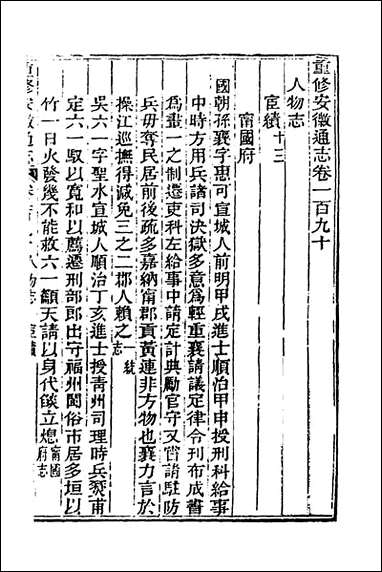 重修安徽通志卷一百九十
人物志
宦績十三
甯國府
國朝孫襄字惠可宣城人前明甲戌進士順治甲申授刑科給事
中時方用兵諸司決獄多意為輕重襄請議定律令刊布成書
為畫一之制遷吏科左給事中請定計典勵官守又嘗請駐防
兵毋奪民居前後疏多嘉納南郡貢黃連非方物也襄力言於
操江巡撫得減免三之二郡人賴之一統志
吳六一字聖水宣城人順治丁亥進士授青州司理時兵燹甫
定六一馭以寬和以薦遷刑部郎出守福州閩俗市居多垣以
竹一日火發幾不能救六一籲天請以身代燄立熄甯國府志